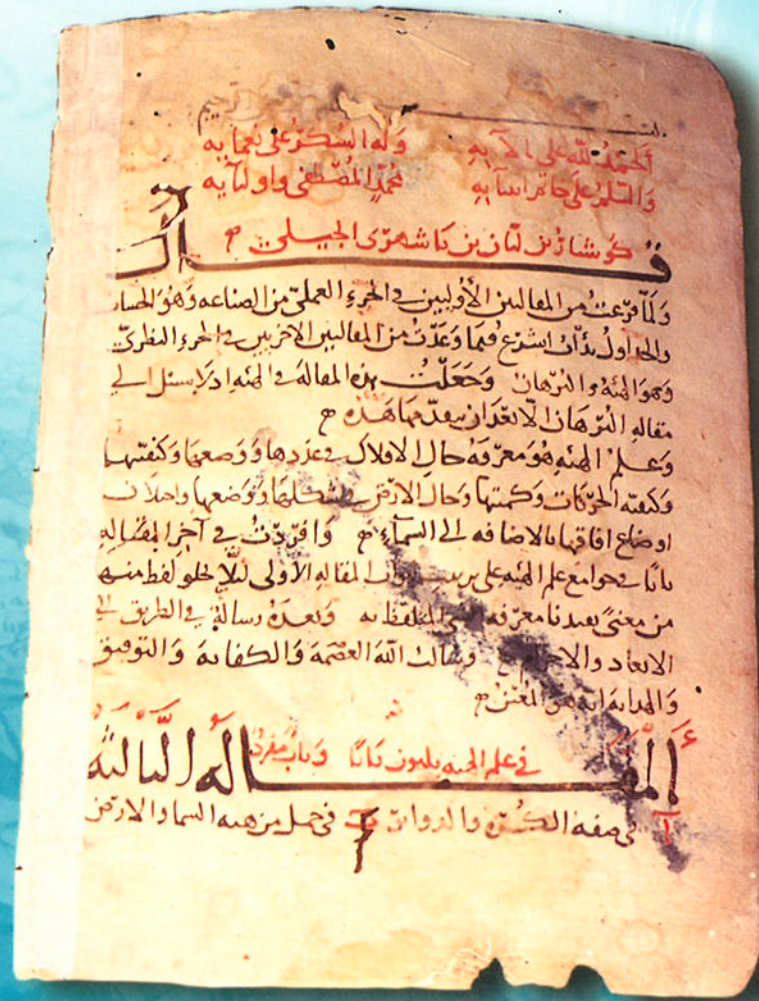 الحمد لله على الآيه وله الشكر على نعمايه
والسلم على خاتم انبيايه محمد المصطفى واوليايه
قال كوشيار بن لبان بن باشهرى الجيلي
ولما فرغت من المقالتين الأوليين في الجزء العملي من الصناعه وهو الحساب
والجداول بدأت اشرع فيما وعدت من المقالتين الاخريين في الجزء النظري
وهو الهيئه والبرهان وجعلت هذه المقالة في الهيئه اذ لا سبيل الى
مقاله البرهان الا بعد ان يتقدمها هذه
وعلم الهيئه هو معرفة حال الافلاك في عددها ووضعها وكيفيتها
وكيفيه الحركات وكميتها وحال الارض في شكلها ووضعها واختلاف
اوضاع افاقها بالاضافه الى السماء وافردت في آخر المقاله
بابا في جوامع علم الهيئه على ترتيب ابواب المقاله الأولى لئلا يخلو لفظ منها
من معنى يفيدنا معرفة المتلفظ به وبعده رسالة في الطريق الى
الابعاد والاجرام وسالت الله العصمة والكفاية والتوفيق
والهداية انه هو المعين
المقاله الثالثه في علم الهيئه ثلثون بابا وباب مفرد
آ في صفة الكره والدوائر ب في جمل من هيئه السما والارض